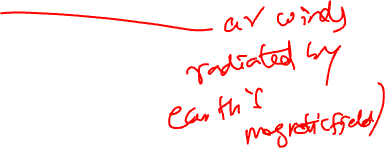 ar winds
radiated by
earth's
magneticfield)